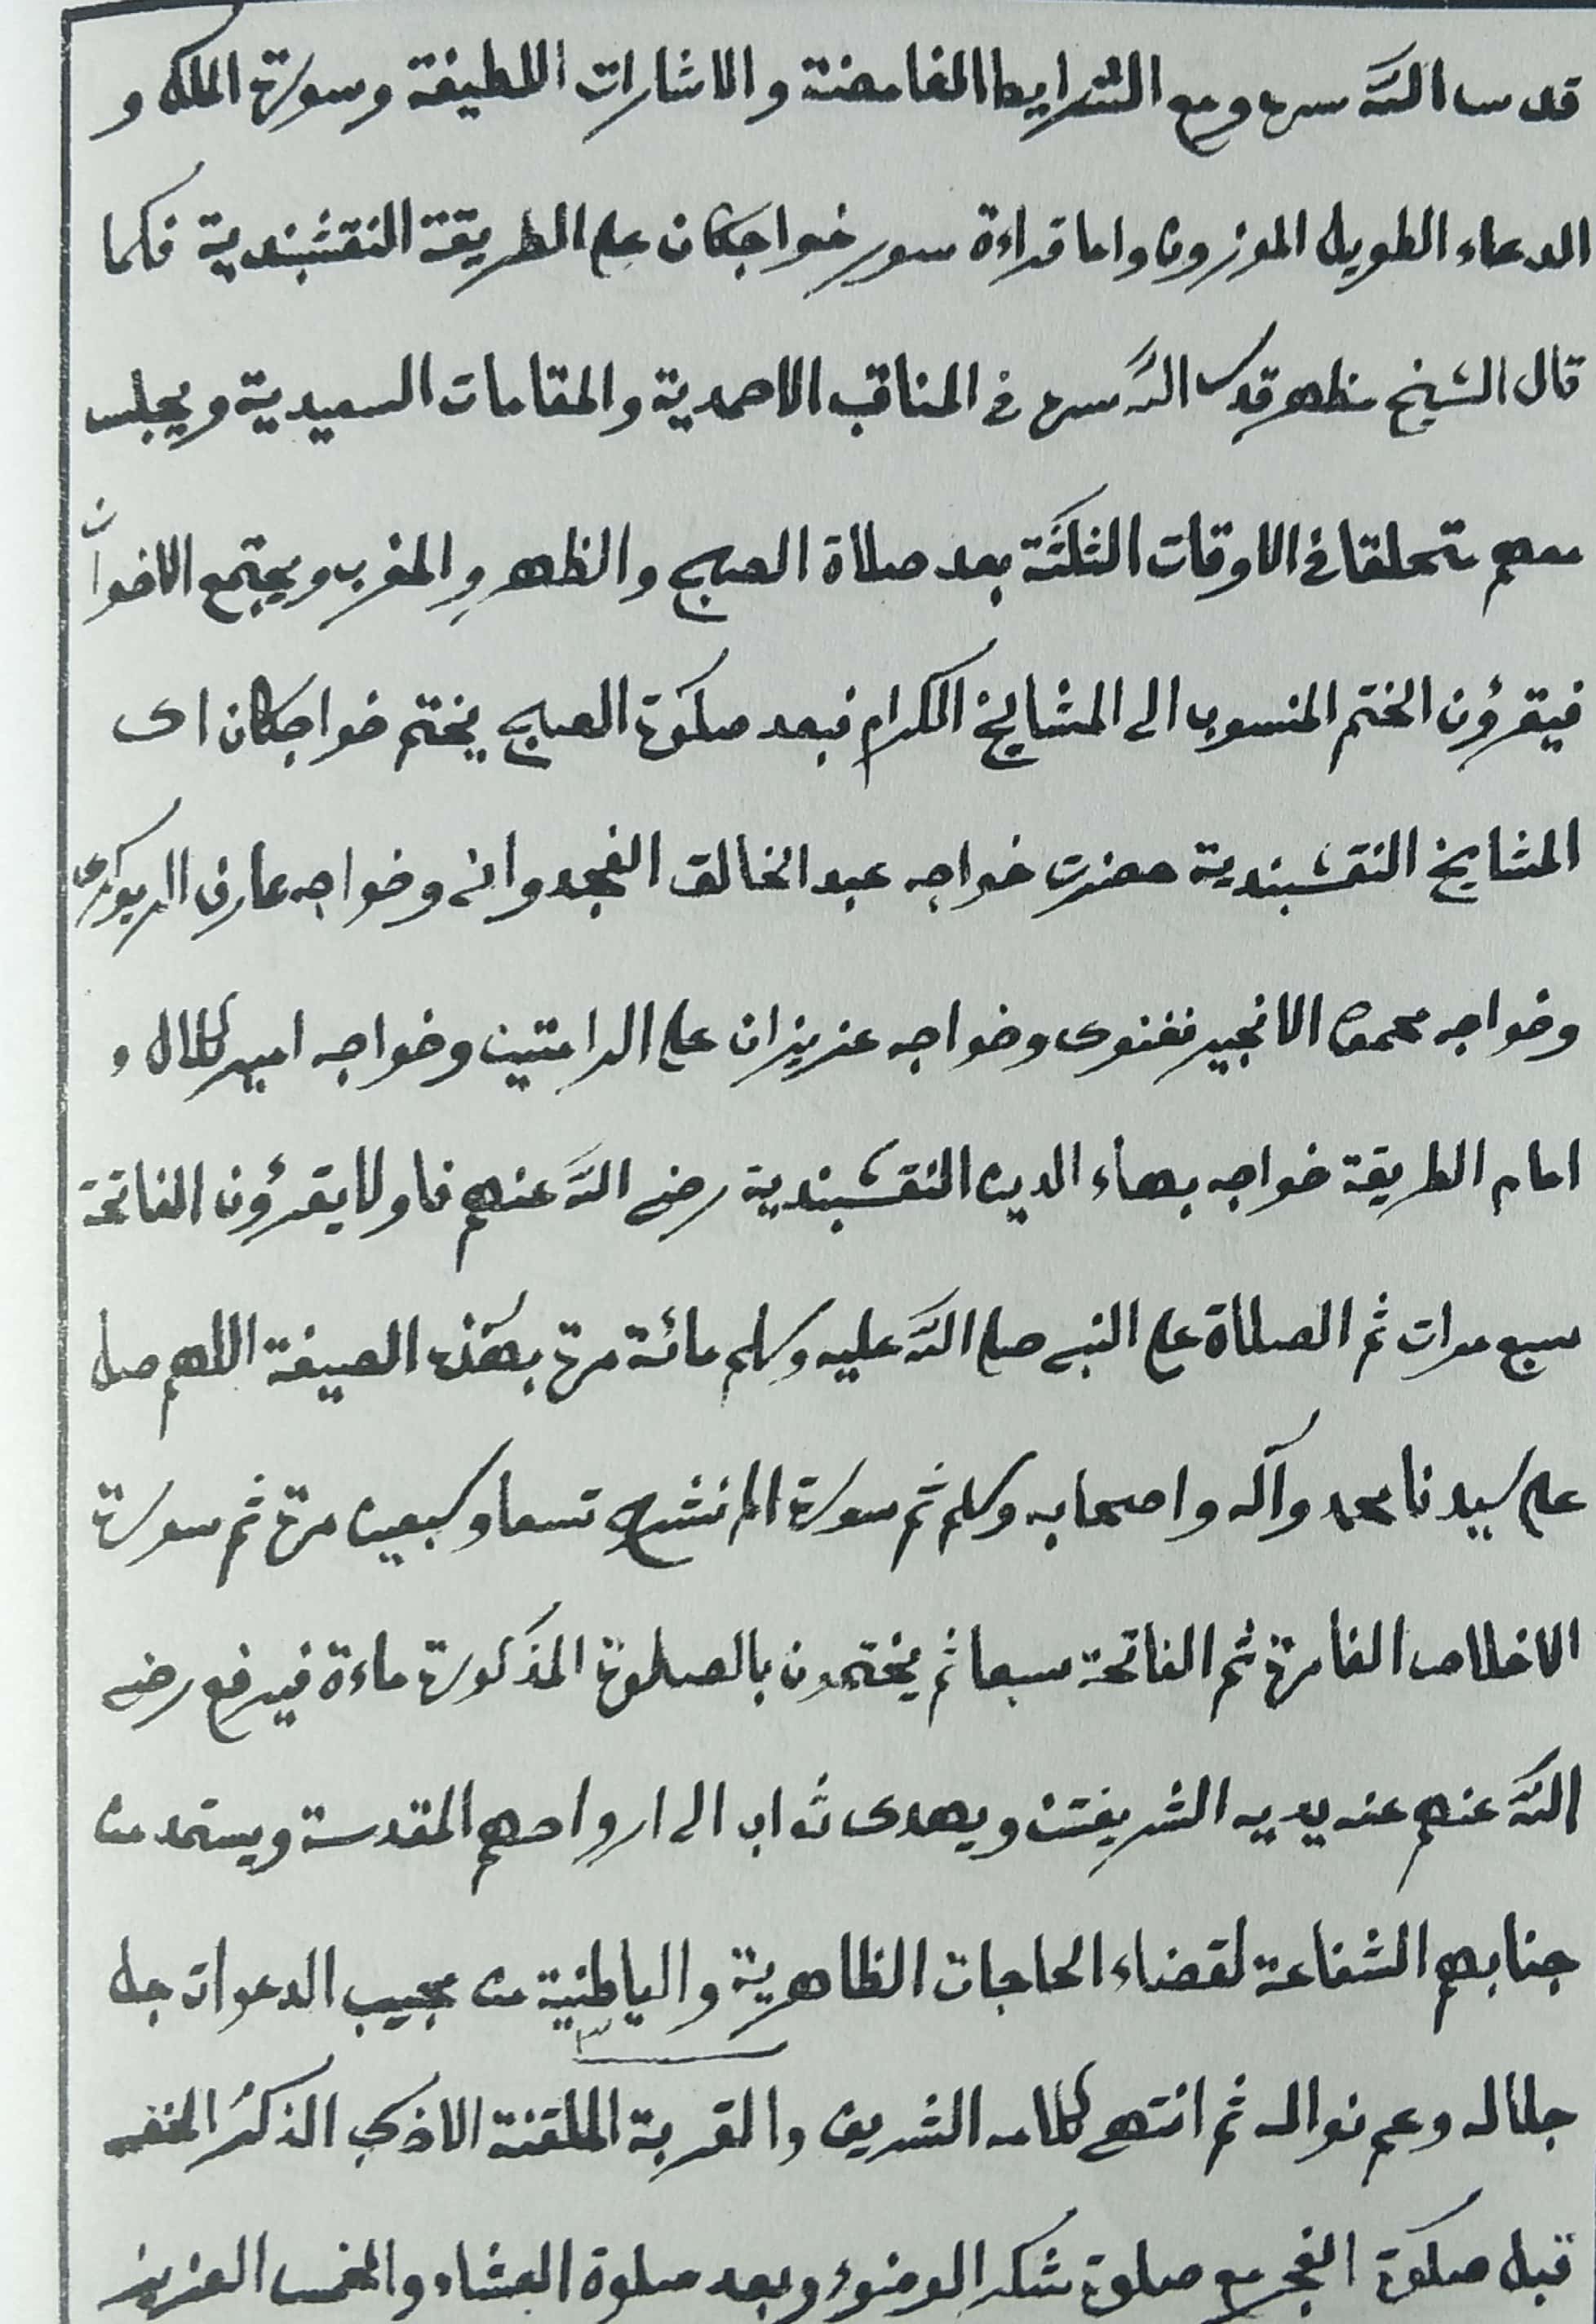 قدس اللّه سره ومع الشرايط الغامضة والاشارات اللطيفة وسورة الملك و
الدعاء الطويل الموزون واما قراءة سور خواجكان على الطريقة النقشبندية فكما
قال الشيخ مظهر قدس اللّه سره في المناقب الاحمدية والمقامات السعيدية ويجلس
معهم متحلقا في الاوقات الثلثة بعد صلاة الصبح والظهر والمغرب ويجتمع الاخوان
فيقرؤن الختم المنسوب الى المشايخ الكرام فبعد صلوة الصبح يختم خواجكان اى
المشايخ النقشبندية حضرت خواجه عبد الخالق الغجدوانى وخواجه عارف الريوكرى
وخواجه محمود الانجير فغنوى وخواجه عزيزان على الرامتين وخواجه امير كلال و
امام الطريقة خواجه بهاء الدين النقشبندية رضى اللّه عنهم فاولا يقرؤن الفاتحة
سبع مرات ثم الصلاة على النبى صلى اللّه عليه وسلم مائة مرة بهذه الصيغة اللهم صل
على سيدنا محمد وآله واصحابه وسلم ثم سورة الم نشرح تسعا وسبعين مرة ثم سورة
الاخلاص الفا مرة ثم الفاتحة سبعا ثم يختمون بالصلوة المذكورة ماءة فيرفع رضى
اللّه عنهم عنه يديه الشريفتن ويهدى ثواب الى ارواحهم المقدسة ويستمد من
جنابهم الشفاعة لقضاء الحاجات الظاهرية والباطنية من مجيب الدعوات جل
جلاله وعم نواله ثم انتهى كلامه الشريف والقربة الملقنة الاذكى الذكر الخفى
قبل صلوة الفجر مع صلوة شكر الوضوء وبعد صلوة العشاء والخمس العزيز